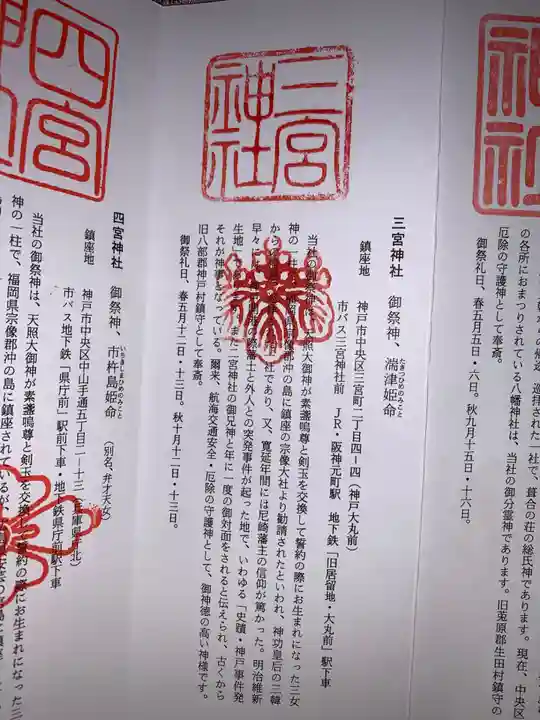 神社
の各所におまつりされている八幡神社は、当社の御分霊神であります。旧菟原郡生田村鎮守の
厄除の守護神として奉斎。
御祭礼日、春五月五日・六日。秋九月十五日・十六日。
三宮神社
三宮神社 御祭神、湍津姫命
たきつひめのみこと
鎮座地 神戸市中央区三宮町二丁目四-四(神戸大丸前)
市バス三宮神社前 JR・阪神元町駅 地下鉄「旧居留地・大丸前」駅下車
当社の御祭神は、天照大御神が素盞嗚尊と剣玉を交換して誓約の際にお生まれになった三女
神の一柱 沖の島に鎮座の宗像大社より勧請されたといわれ、神功皇后の三韓
から 社であり、又、寛延年間には尼崎藩主の信仰が篤かった。明治維新
早々に 藩士と外人との突発事件が起った地で、いわゆる「史蹟・神戸事件発
生地」 また二宮神社の御兄神と年に一度の御対面をされると伝えられ、古くから
それが神事となっている。爾来、航海交通安全・厄除の守護神として、御神徳の高い神様です。
旧八部郡神戸村鎮守として奉斎。
御祭礼日、春五月十二日・十三日。秋十月十二日・十三日。
四宮
四宮神社 御祭神、市杵島姫命 (別名、弁才天女)
いちきしまひめのみこと
鎮座地 神戸市中央区中山手通五丁目二-十三(兵庫県庁北)
市バス地下鉄「県庁前」駅前下車・地下鉄県庁前駅下車
当社の御祭神は、天照大御神が素盞嗚尊と剣玉を交換して誓約の際にお生まれになった三
神の一柱で、福岡県宗像郡沖の島に鎮座されているが